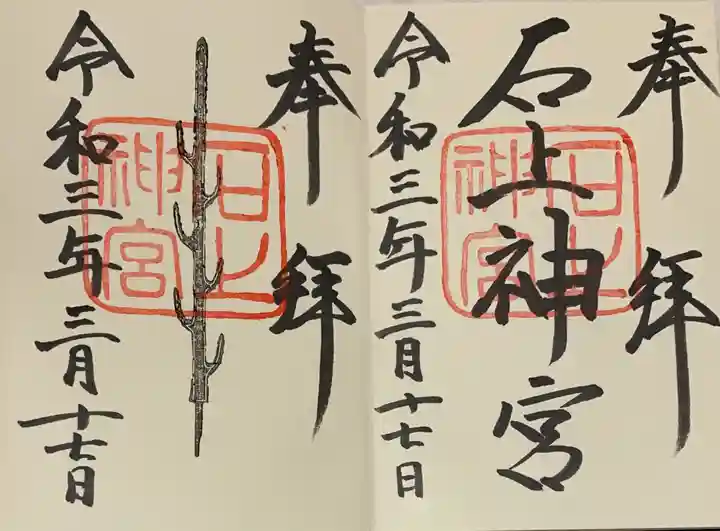 奉拝
石上神宮
令和三年三月十七日
石上神宮
奉拝
令和三年三月十七日
石上神宮